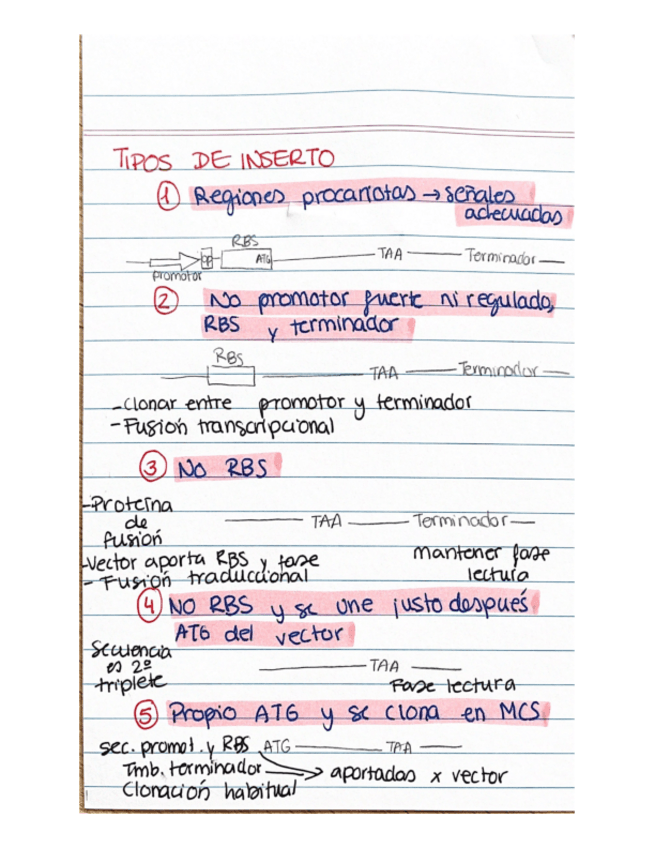 TIPOS DE INSERTO
① Regiones procariotas → señales
adecuadas
RBS
ATG TAA Terminador
promotor
② No promotor fuerte ni regulado,
RBS y terminador
RBS
TAA Terminador
-Clonar entre promotor y terminador
-Fusión transcripcional
③ No RBS
-Proteína
de
fusión
TAA Terminador
-Vector aporta RBS y fase
mantener fase
lectura
- Fusión traduccional
④ NO RBS y se une justo después
ATG del vector
Secuencia
es 2º
triplete
TAA
Fase lectura
⑤ Propio ATG y se clona en MCS
sec. promot. y RBS ATG TAA
Tmb. terminador → aportadas x vector
Clonación habitual